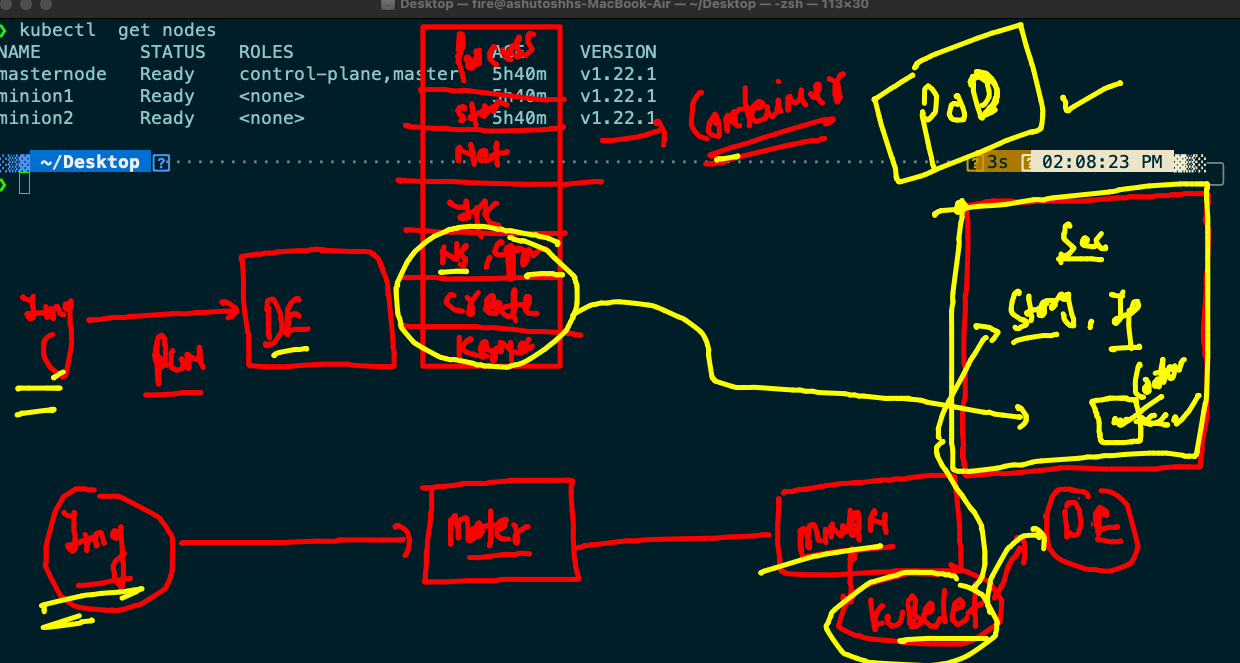 Desktop — fire@ashutoshhs-MacBook-Air — ~/Desktop — -zsh — 113×30
❯ kubectl  get nodes
NAME STATUS ROLES AGE VERSION
masternode Ready control-plane,master 5h40m v1.22.1
minion1 Ready <none> 5h40m v1.22.1
minion2 Ready <none> 5h40m v1.22.1
~/Desktop ? 3s 02:08:23 PM
❯
Process
Stor
Net
Container
POD
NS,
create
Kernel
Sec
Storg, Ip
Img
Run
DE
Img
Master
Minion
DE
kubelet